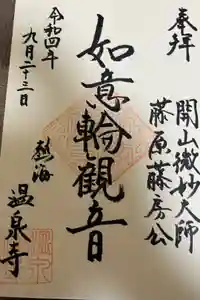 奉拝
開山微妙大師
藤原藤房公
如意輪観音
令和四年
九月二十三日
熱海
温泉寺